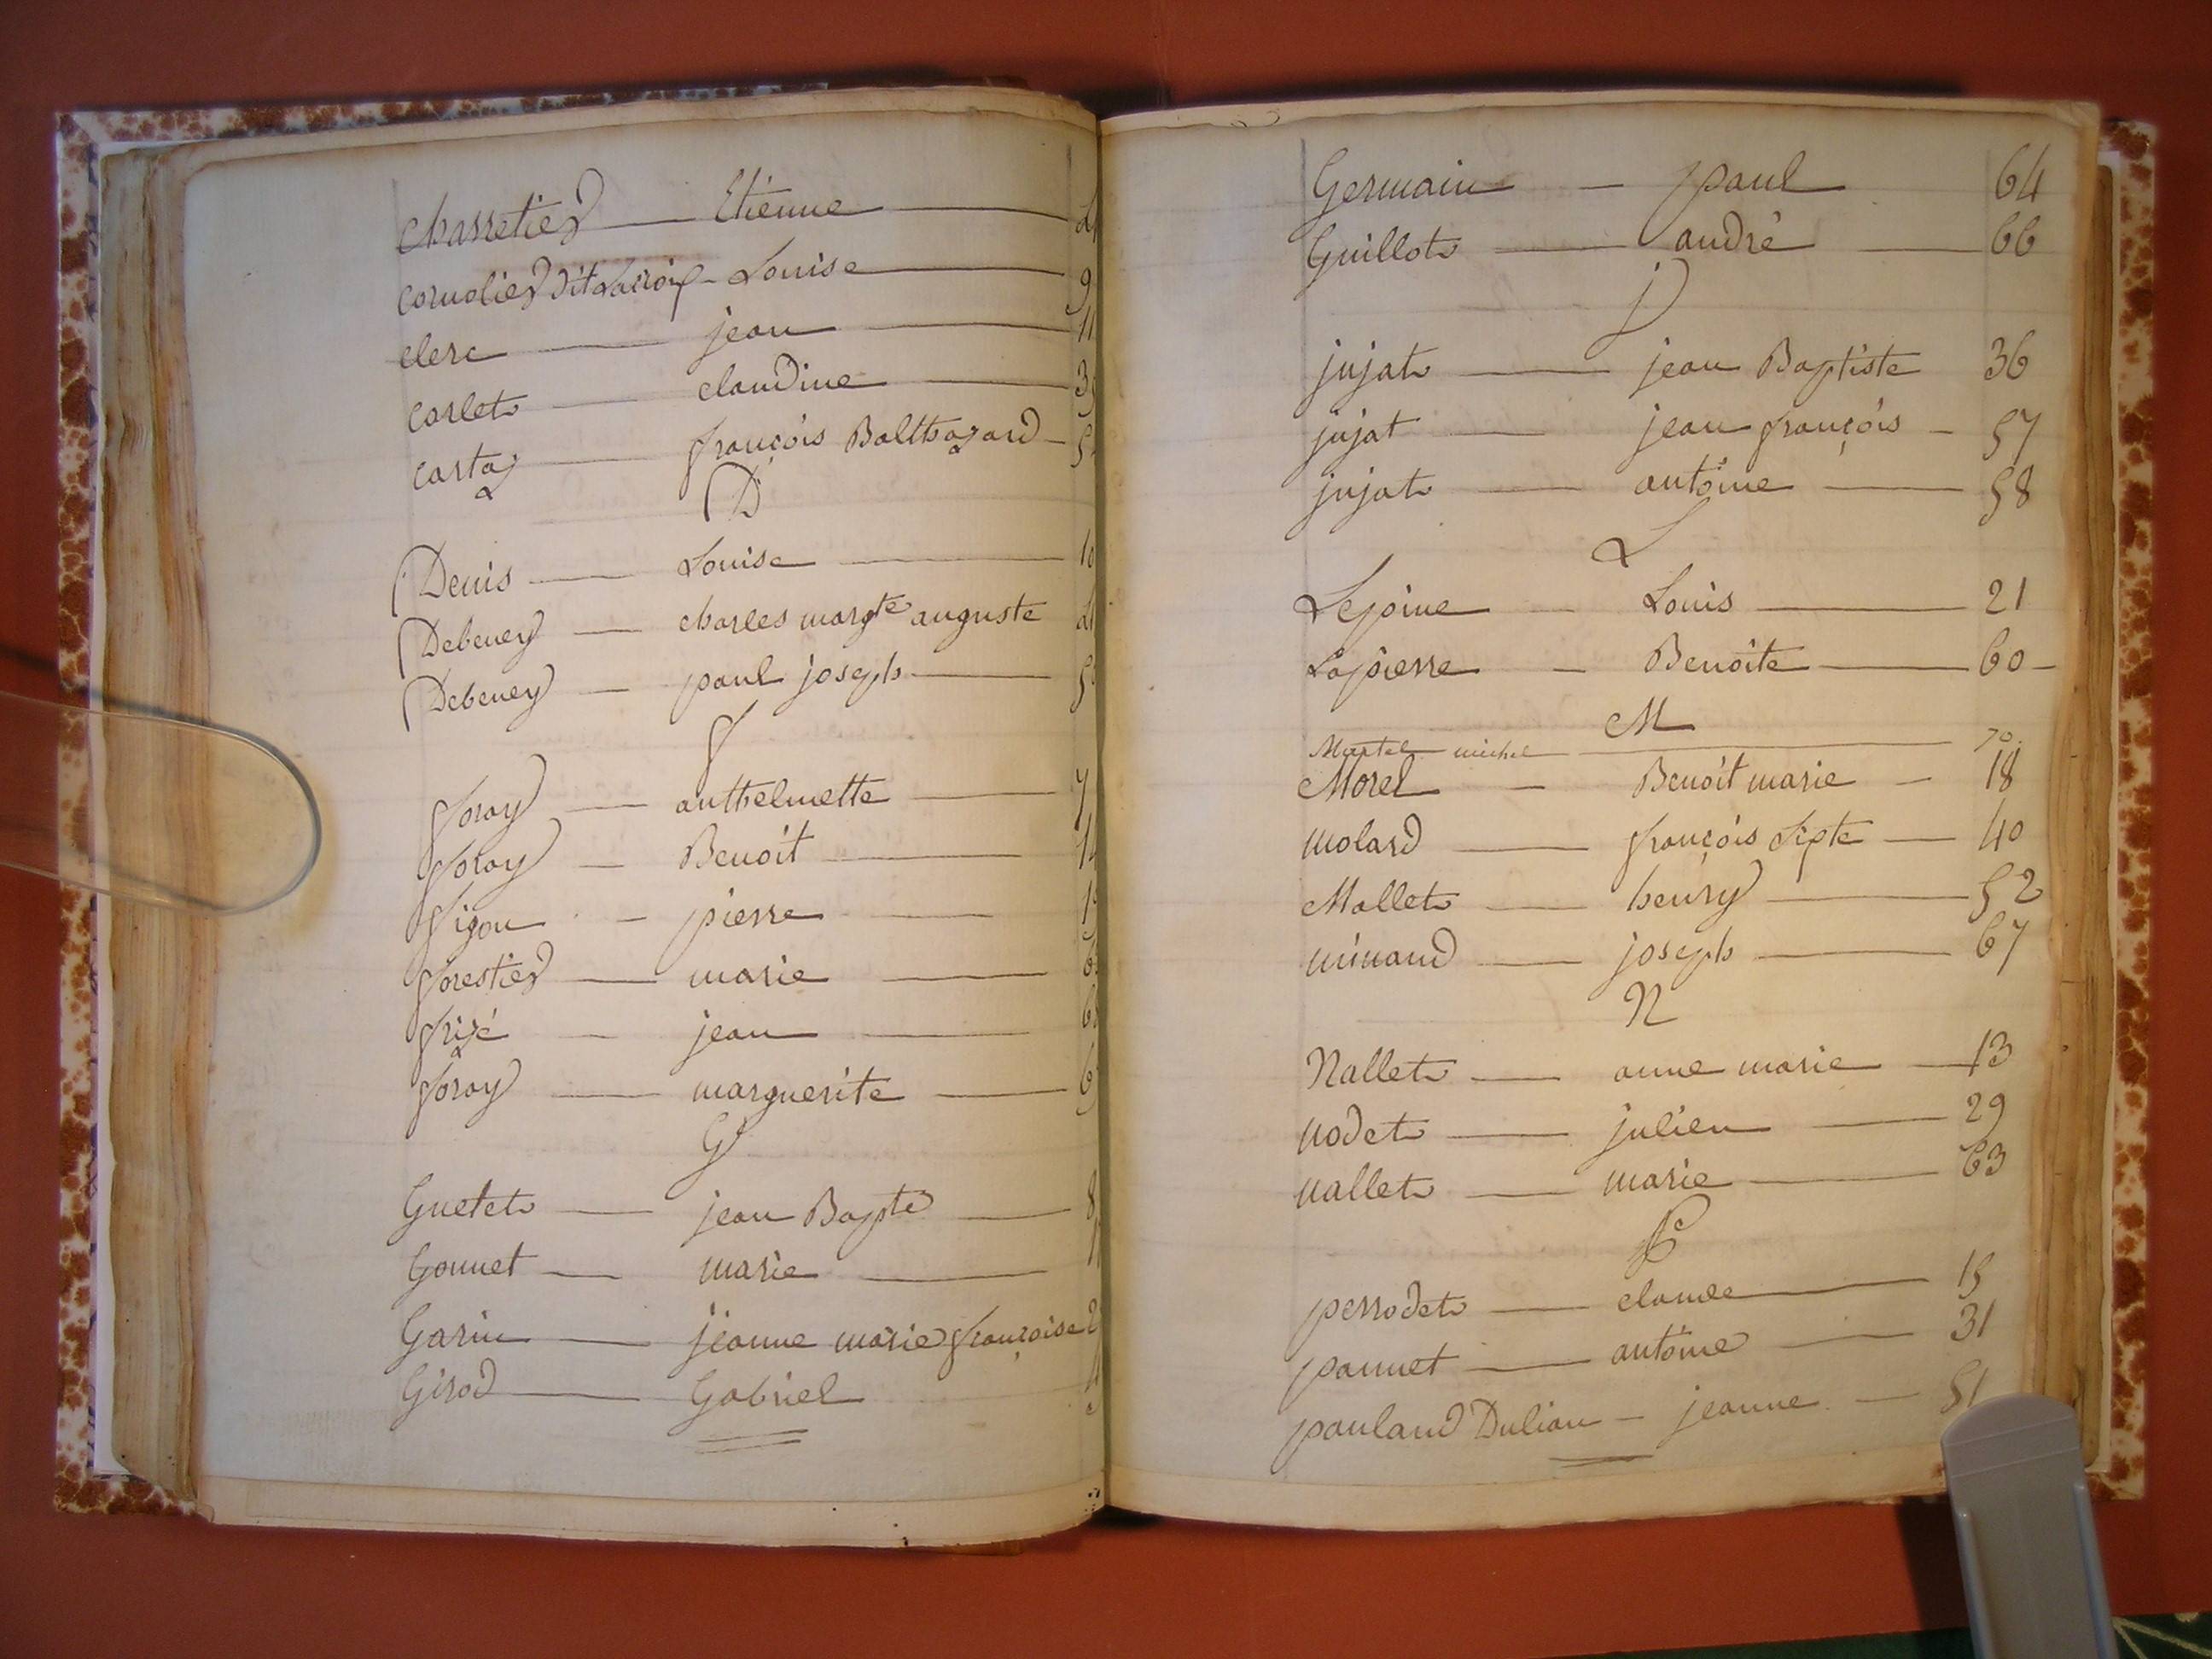 Charretier — Etienne
Cornolier dit Lacroix — Louise — 9
Clerc — jean — 11
Carlet — claudine — 39
Cartaz — françois Balthazard
D
Denis — Louise — 10
Debeney — charles margte auguste
Debeney — paul joseph
f
foray — anthelmette — 7
foray — Benoit
figon — pierre
forestier — marie
frizé — jean
foray — marguerite
G
Guetet — jean Bapte — 8
Gonnet — marie
Garin — jeanne marie françoise
Girod — Gabriel
Germain — paul 64
Guillot — andré — 66
j
jujat — jean Baptiste 36
jujat — jean françois — 57
jujat — antoine — 58
L
Lejoine — Louis — 21
Lapierre — Benoite — 60 —
M
Martel michel — 70
Morel — Benoit marie — 18
molard — françois — 40
Mallet — henry — 52
minand — joseph — 67
N
Nallet — anne marie — 13
nodet — julien — 29
nallet — marie — 63
P
perrodet — claude — 15
pannet — antoine — 31
pauland Dulian — jeanne — 51